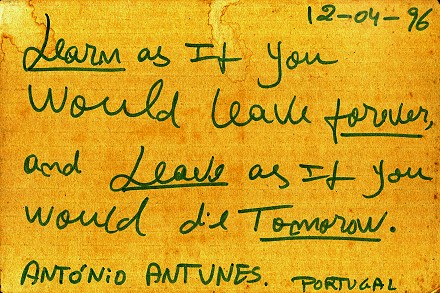 12-04-96
Learn as If you
Would leave forever,
and Leave as If you
would die Tomorrow.
ANTÓNIO ANTUNES. PORTUGAL